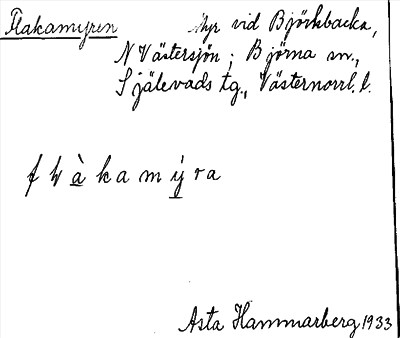 Flakamyren Myr vid Björkbacka,
N Västersjön; Björna sn.,
Själevads tg., Västernorrl. l.
f ɫ à k a m ý r a
Asta Hammarberg 1933